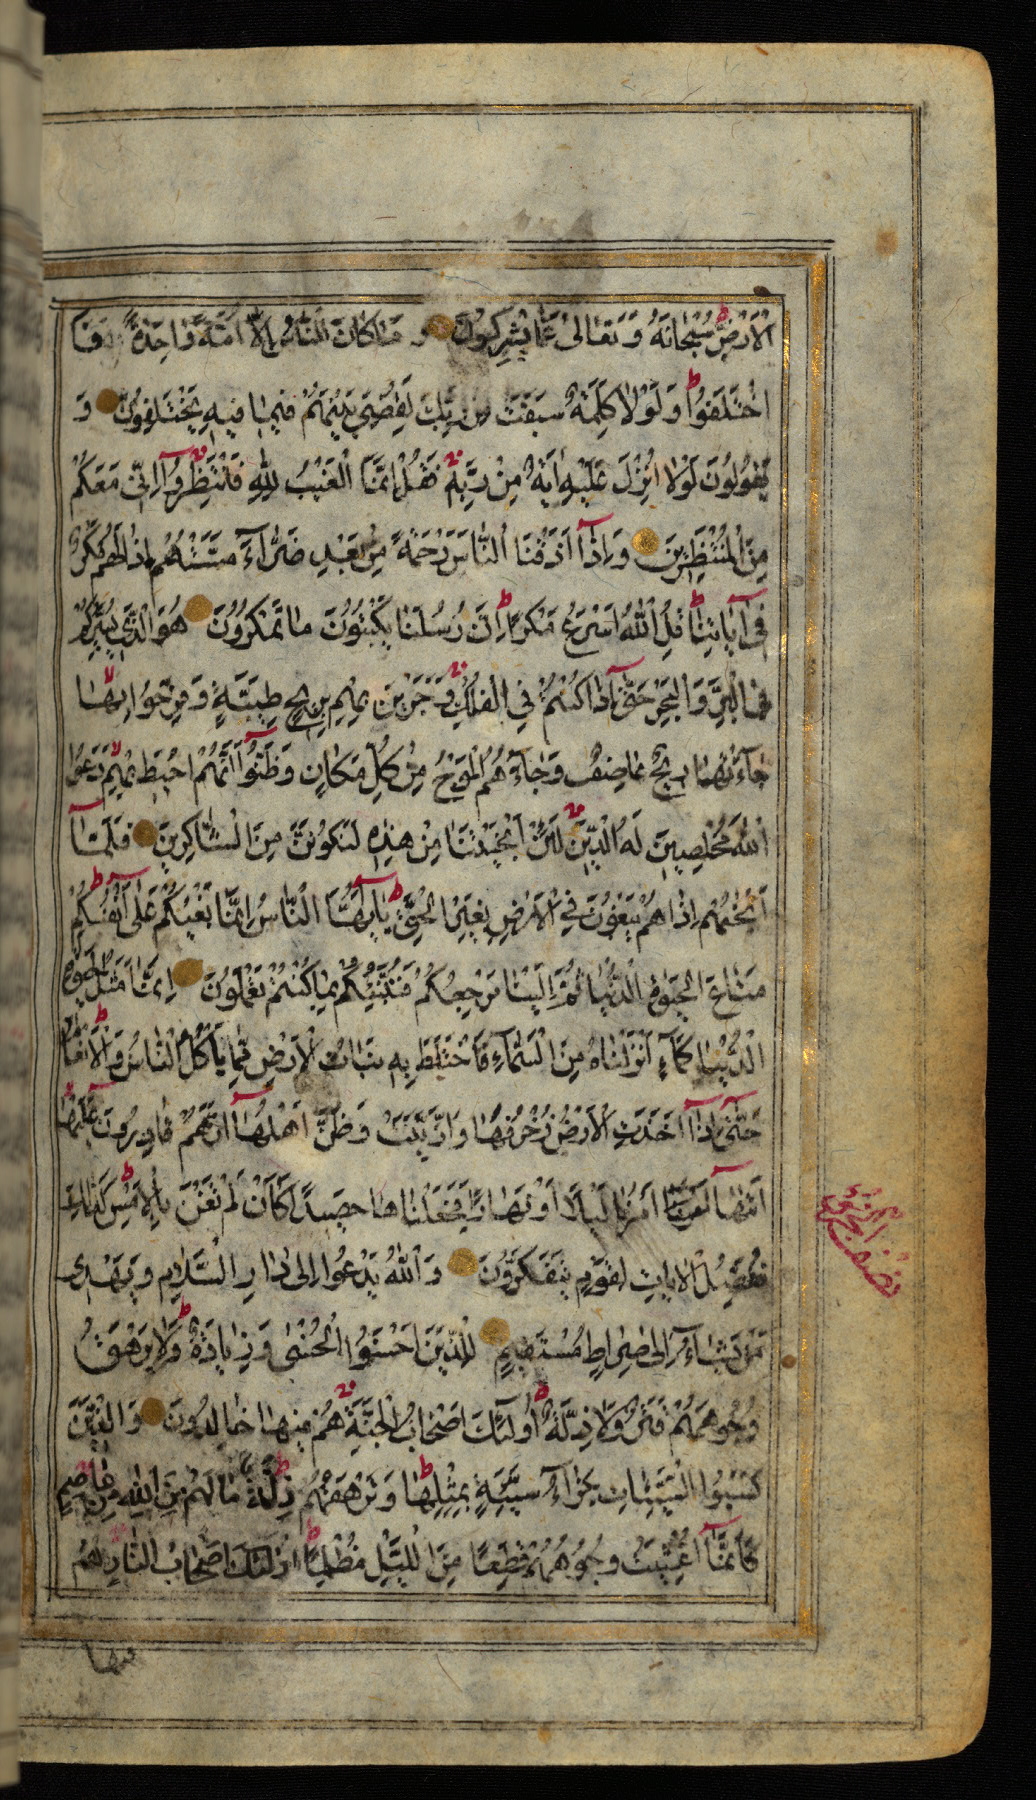 الْاَرْضِ سُبْحَانَهُ وَ تَعَالٰى عَمَّا يُشْرِكُونَ و مَا كَانَ النَّاسُ اِلَّا اُمَّةً وَاحِدَةً فَا
اخْتَلَفُوا وَ لَوْلَا كَلِمَةٌ سَبَقَتْ مِنْ رَبِّكَ لَقُضِيَ بَيْنَهُمْ فِيمَا فِيهِ يَخْتَلِفُونَ وَ
يَقُولُونَ لَوْلَا اُنْزِلَ عَلَيْهِ اٰيَةٌ مِنْ رَبِّهِ فَقُلْ اِنَّمَا الْغَيْبُ لِلّٰهِ فَانْتَظِرُوا اِنِّي مَعَكُمْ
مِنَ الْمُنْتَظِرِينَ وَ اِذَا اَذَقْنَا النَّاسَ رَحْمَةً مِنْ بَعْدِ ضَرَّاءَ مَسَّتْهُمْ اِذَا لَهُمْ مَكْرٌ
فِي اٰيَاتِنَا قُلِ اللّٰهُ اَسْرَعُ مَكْرًا اِنَّ رُسُلَنَا يَكْتُبُونَ مَا تَمْكُرُونَ هُوَ الَّذِي يُسَيِّرُكُمْ
فِي الْبَرِّ وَ الْبَحْرِ حَتّٰى اِذَا كُنْتُمْ فِي الْفُلْكِ وَ جَرَيْنَ بِهِمْ بِرِيحٍ طَيِّبَةٍ وَ فَرِحُوا بِهَا
جَاءَتْهَا رِيحٌ عَاصِفٌ وَ جَاءَهُمُ الْمَوْجُ مِنْ كُلِّ مَكَانٍ وَ ظَنُّوا اَنَّهُمْ اُحِيطَ بِهِمْ دَعَوُا
اللّٰهَ مُخْلِصِينَ لَهُ الدِّينَ لَئِنْ اَنْجَيْتَنَا مِنْ هٰذِهِ لَنَكُونَنَّ مِنَ الشَّاكِرِينَ فَلَمَّا
اَنْجٰهُمْ اِذَا هُمْ يَبْغُونَ فِي الْاَرْضِ بِغَيْرِ الْحَقِّ يَا اَيُّهَا النَّاسُ اِنَّمَا بَغْيُكُمْ عَلٰى اَنْفُسِكُمْ
مَتَاعَ الْحَيٰوةِ الدُّنْيَا ثُمَّ اِلَيْنَا مَرْجِعُكُمْ فَنُنَبِّئُكُمْ بِمَا كُنْتُمْ تَعْمَلُونَ اِنَّمَا مَثَلُ الْحَيٰوةِ
الدُّنْيَا كَمَاءٍ اَنْزَلْنَاهُ مِنَ السَّمَاءِ فَاخْتَلَطَ بِهِ نَبَاتُ الْاَرْضِ مِمَّا يَاْكُلُ النَّاسُ وَ الْاَنْعَامُ
حَتّٰى اِذَا اَخَذَتِ الْاَرْضُ زُخْرُفَهَا وَ ازَّيَّنَتْ وَ ظَنَّ اَهْلُهَا اَنَّهُمْ قَادِرُونَ عَلَيْهَا
اَتٰهَا اَمْرُنَا لَيْلًا اَوْ نَهَارًا فَجَعَلْنَاهَا حَصِيدًا كَاَنْ لَمْ تَغْنَ بِالْاَمْسِ كَذٰلِكَ
نُفَصِّلُ الْاٰيَاتِ لِقَوْمٍ يَتَفَكَّرُونَ وَ اللّٰهُ يَدْعُوا اِلٰى دَارِ السَّلَامِ وَ يَهْدِي
مَنْ يَشَاءُ اِلٰى صِرَاطٍ مُسْتَقِيمٍ لِلَّذِينَ اَحْسَنُوا الْحُسْنٰى وَ زِيَادَةٌ وَ لَا يَرْهَقُ
وُجُوهَهُمْ قَتَرٌ وَ لَا ذِلَّةٌ اُولٰئِكَ اَصْحَابُ الْجَنَّةِ هُمْ فِيهَا خَالِدُونَ وَ الَّذِينَ
كَسَبُوا السَّيِّئَاتِ جَزَاءُ سَيِّئَةٍ بِمِثْلِهَا وَ تَرْهَقُهُمْ ذِلَّةٌ مَا لَهُمْ مِنَ اللّٰهِ مِنْ عَاصِمٍ
كَاَنَّمَا اُغْشِيَتْ وُجُوهُهُمْ قِطَعًا مِنَ اللَّيْلِ مُظْلِمًا اُولٰئِكَ اَصْحَابُ النَّارِ هُمْ
فيها
نصف الجزء